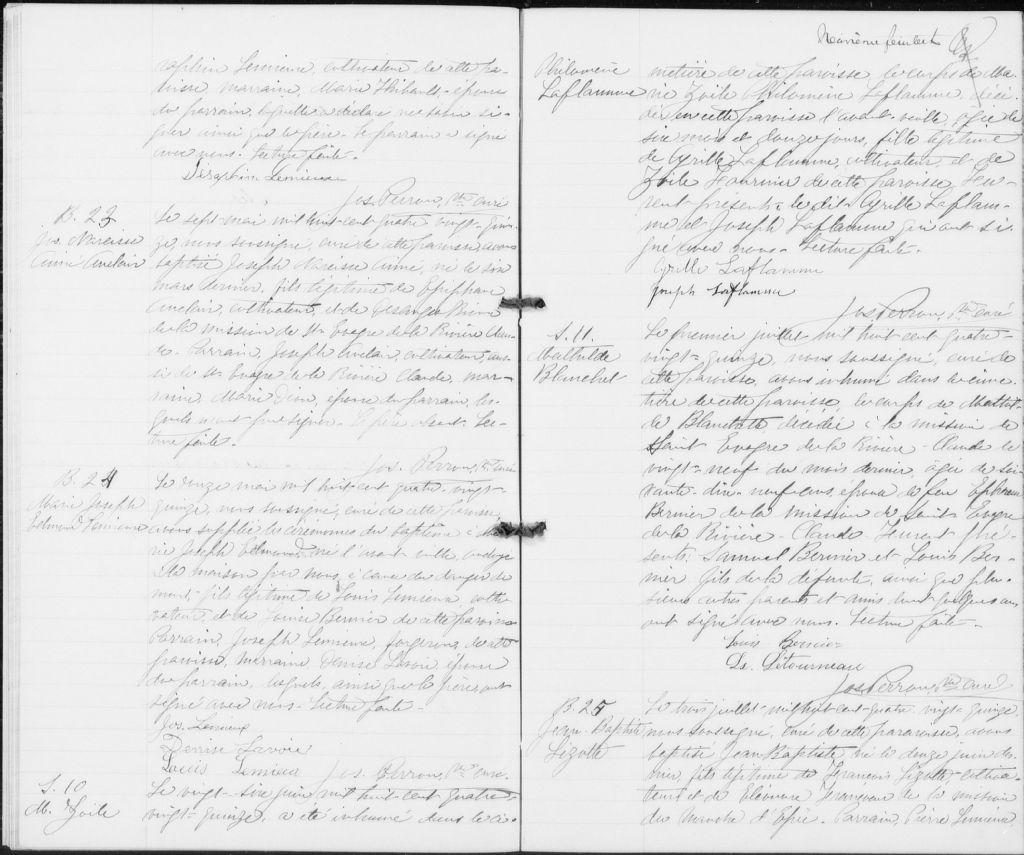 Séraphin Lemieux, cultivateur de cette pa-
roisse, marraine, Marie Thibault épouse
du parrain, laquelle a déclaré ne savoir si-
gner ainsi que le père. Le parrain a signé
avec nous. Lecture faite.
Séraphin Lemieux
Jos. Perron, Ptre Curé
B. 23
Jos. Narcisse
Aimé Auclair
Le sept mai mil huit cent quatre-vingt-quin-
ze, nous soussigné, curé de cette paroisse avons
baptisé Joseph Narcisse Aimé, né le six
mars dernier, fils légitime de Epiphane
Auclair, cultivateur, et de
de la mission de St Evagre de la Rivière Clau-
de. Parrain, Joseph Auclair, cultivateur, aus-
si de St Evagre de la Rivière Claude, mar-
raine, Marie Dion, épouse du parrain, les-
quels n'ont pu signer. Le père absent. Lec-
ture faite.
Jos. Perron, Ptre Curé
B. 24
Marie Joseph
Edmond Lemieux
Le douze mai mil huit cent quatre-vingt-
quinze, nous soussigné, curé de cette paroisse,
avons supplié les cérémonies du baptême à Ma-
rie Joseph Edmond, né l'avant veille, ondoyé
à la maison par nous, à cause du danger de
mort, fils légitime de Louis Lemieux culti-
vateur, et de Louise Bernier de cette paroisse
Parrain, Joseph Lemieux, forgeron, de cette
paroisse, Marraine Denise Lavoie épouse
du parrain, lesquels, ainsi que le père ont
signé avec nous. Lecture faite.
Jos. Lemieux
Denise Lavoie
Louis Lemieux Jos. Perron, Ptre Curé.
S. 10
M. Zoile
Le vingt-six juin mil huit cent quatre-
vingt-quinze, a été inhumé dans le ci-
Neuvième feuillet
Philomène
Laflamme
metière de cette paroisse, le corps de Ma-
rie Zoile Philomène Laflamme, décé-
dée en cette paroisse l'avant-veille, agée de
six mois et douze jours, fille légitime
de Cyrille Laflamme, cultivateur, et de
Zoile Fournier de cette paroisse. Fu-
rent présents le dit Cyrille Laflam-
me et Joseph Laflamme qui ont si-
gné avec nous. Lecture faite.
Cyrille Laflamme
Joseph Laflamme
Jos Perron, Ptre Curé
S. 11.
Mathilde
Blanchet
Le premier juillet mil huit cent quatre-
vingt-quinze, nous soussigné, curé de
cette paroisse, avons inhumé dans le cime-
tière de cette paroisse, le corps de Mathil-
de Blanchette décédée à la mission de
Saint Evagre de la Rivière-Claude le
vingt-neuf du mois dernier, agée de soi-
xante-dix-neuf ans, épouse de feu Ephrem
Bernier de la mission de Saint Evagre
de la Rivière-Claude. Furent pré-
sents: Samuel Bernier et Louis Ber-
nier fils de la défunte, ainsi que plu-
sieurs autres parents et amis dont quelques uns
ont signé avec nous. Lecture faite.
Louis Bernier
Ls. Létourneau
Jos Perron, Ptre Curé
B. 25
Jean-Baptiste
Lizotte
Le trois juillet mil huit cent quatre-vingt-quinze,
nous soussigné, curé de cette paroisse, avons
baptisé Jean Baptiste né le douze juin der-
nier, fils légitime de François Lizotte cultiva-
teur et de Eléonore Francoeur de la mission
du Parrain, Pierre Lemieux,